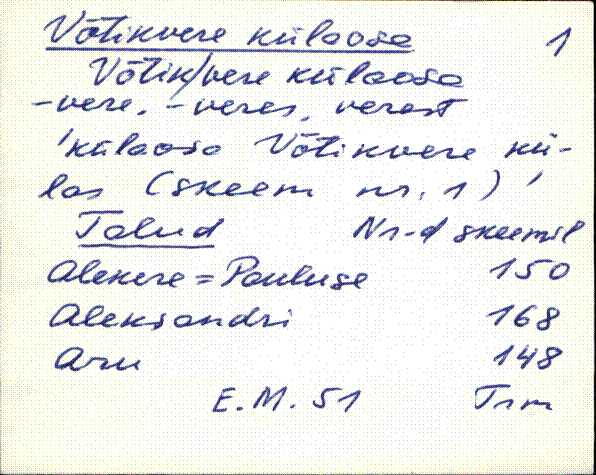 Võtikvere külaosa 1
Võtik/vere külaosa
-vere, -veres, verest
'külaosa Võtikvere kü-
las (skeem nr. 1)'
Talud Nr-d skeemil
Alekere = Pauluse 150
Aleksandri 168
Aru 148
E.M. 51 Trm